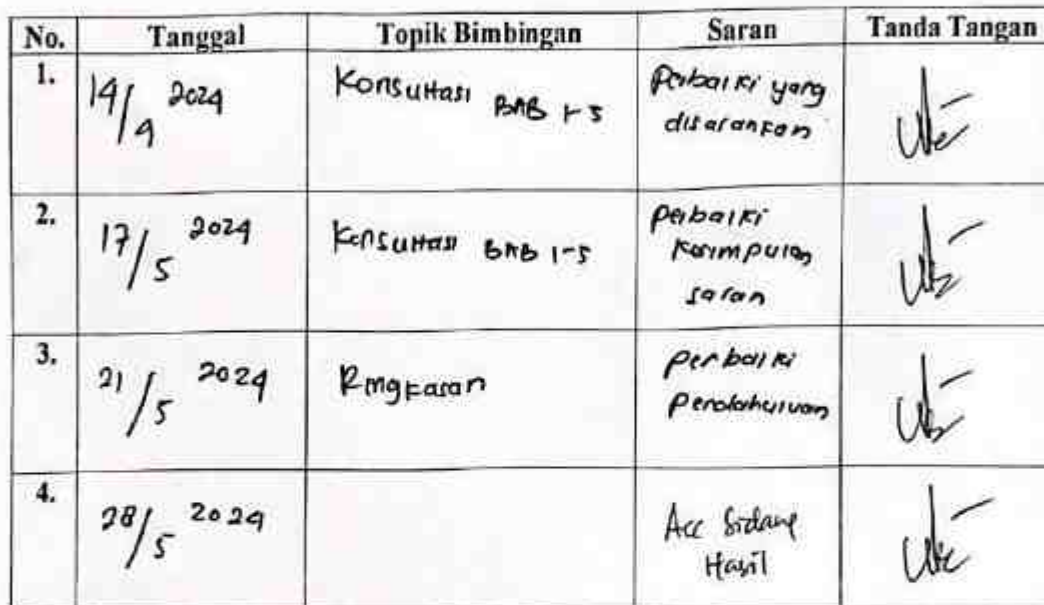 No. Tanggal Topik Bimbingan Saran Tanda Tangan
1. 14/4 2024 Konsultasi BAB 1-5 Perbaiki yang
disarankan
2. 17/5 2024 Konsultasi BAB 1-5 perbaiki
Kesimpulan
saran
3. 21/5 2024 Ringkasan perbaiki
pendahuluan
4. 28/5 2024 Acc Sidang
Hasil